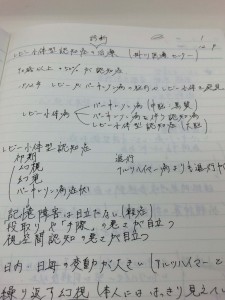 診断
レビー小体型認知症の治療
90歳以上の50%が認知症
レビー小体病
パーキンソン病(中脳:黒質)
パーキンソン病を伴う認知症
レビー小体型認知症(大脳)
レビー小体型認知症
初期
幻視
パーキンソン病症状
進行
アルツハイマー病よりも進行が
記憶障害は目立たない(軽症)
段取りや「手際」の悪さが目立つ
視空間認知の悪さが目立つ
日内・日毎の変動が大きい(アルツハイマーで
繰り返す幻視(本人にははっきり見えてい